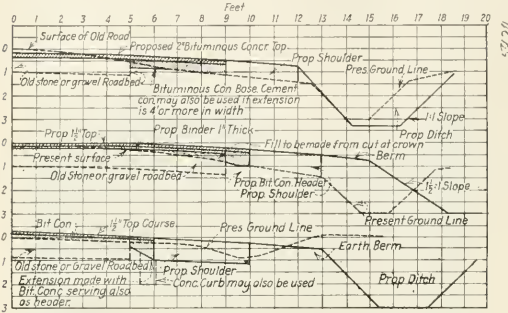 Feet
0 1 2 3 4 5 6 7 8 9 10 11 12 13 14 15 16 17 18 19 20
Surface of Old Road
Proposed 2" Bituminous Concr Top
Prop Shoulder
Pres Ground Line
0
1
Old stone or gravel Roadbed
Bituminous Con Base. Cement
con may also be used if extension
is 4' or more in width
1:1 Slope
Prop Ditch
Prop 1½" Top
Prop Binder 1" Thick
Fill to be made from cut at crown
Berm
0
1
2
3
Present surface
Old Stone or gravel roadbed
Prop Bit. Con. Header
Prop Shoulder
1½:1 Slope
Present Ground Line
Bit Con
1½" Top Course
Pres Ground Line
0
1
2
3
Earth Berm
Old stone or Gravel Roadbed
Prop Shoulder
Extension made with
Bit. Conc serving also
as header.
Conc. Curb may also be used
Prop Ditch